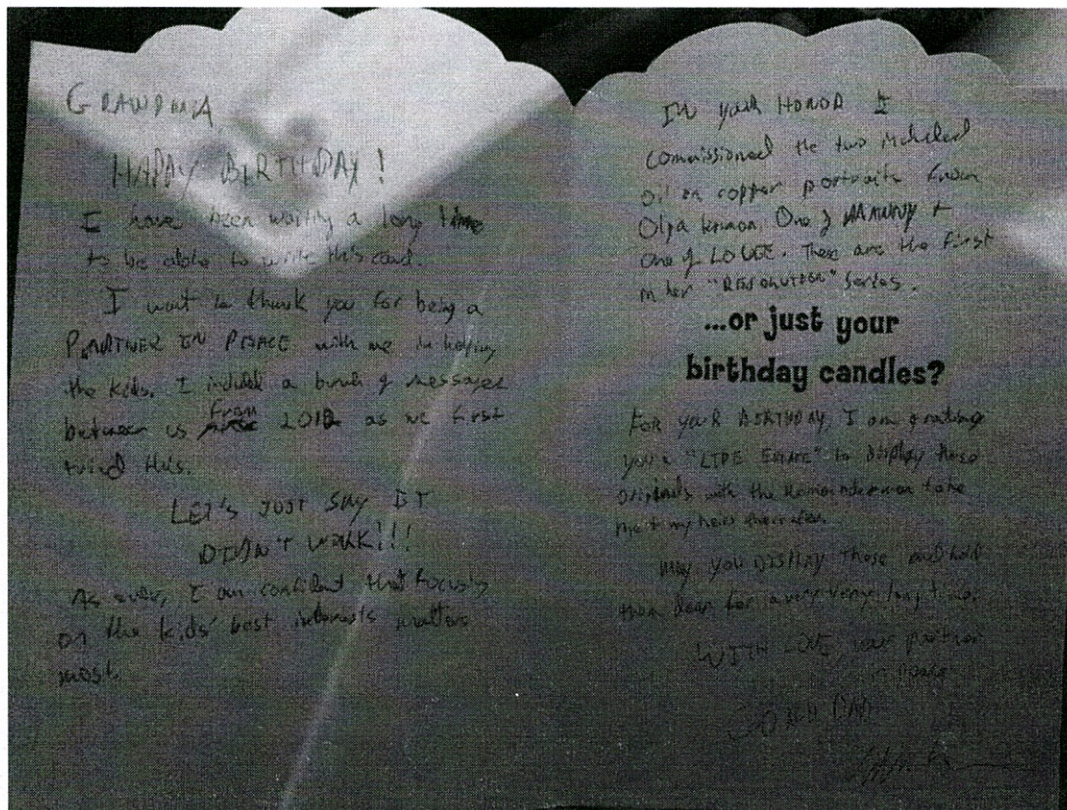 GRANDMA,
HAPPY BIRTHDAY!
I have been waiting a long time
to be able to write this card.
I want to thank you for being a
PARTNER IN PEACE with me in helping
the kids. I include a bunch of messages
between us from 2012 as we first
tried this.
LET'S JUST SAY IT
DIDN'T WORK!!!
As ever, I am confident that focusing
on the kids' best interests matters
most.
IN your HONOR I
commissioned the two included
oil on copper portraits from
Olga One of &
One of These are the first
in her series.
...or just your
birthday candles?
FOR YOUR BIRTHDAY, I am granting
you a "LIFE ESTATE" to display these
originals with the to
me & my heirs thereafter.
May you DISPLAY these and hold
them dear for a very very long time.
WITH LOVE, your partner
in peace